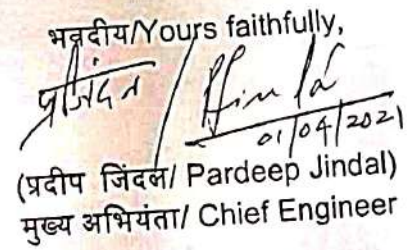 भवदीय/Yours faithfully,
प्रजिंदल / Jindal
01/04/2021
(प्रदीप जिंदल/ Pardeep Jindal)
मुख्य अभियंता/ Chief Engineer